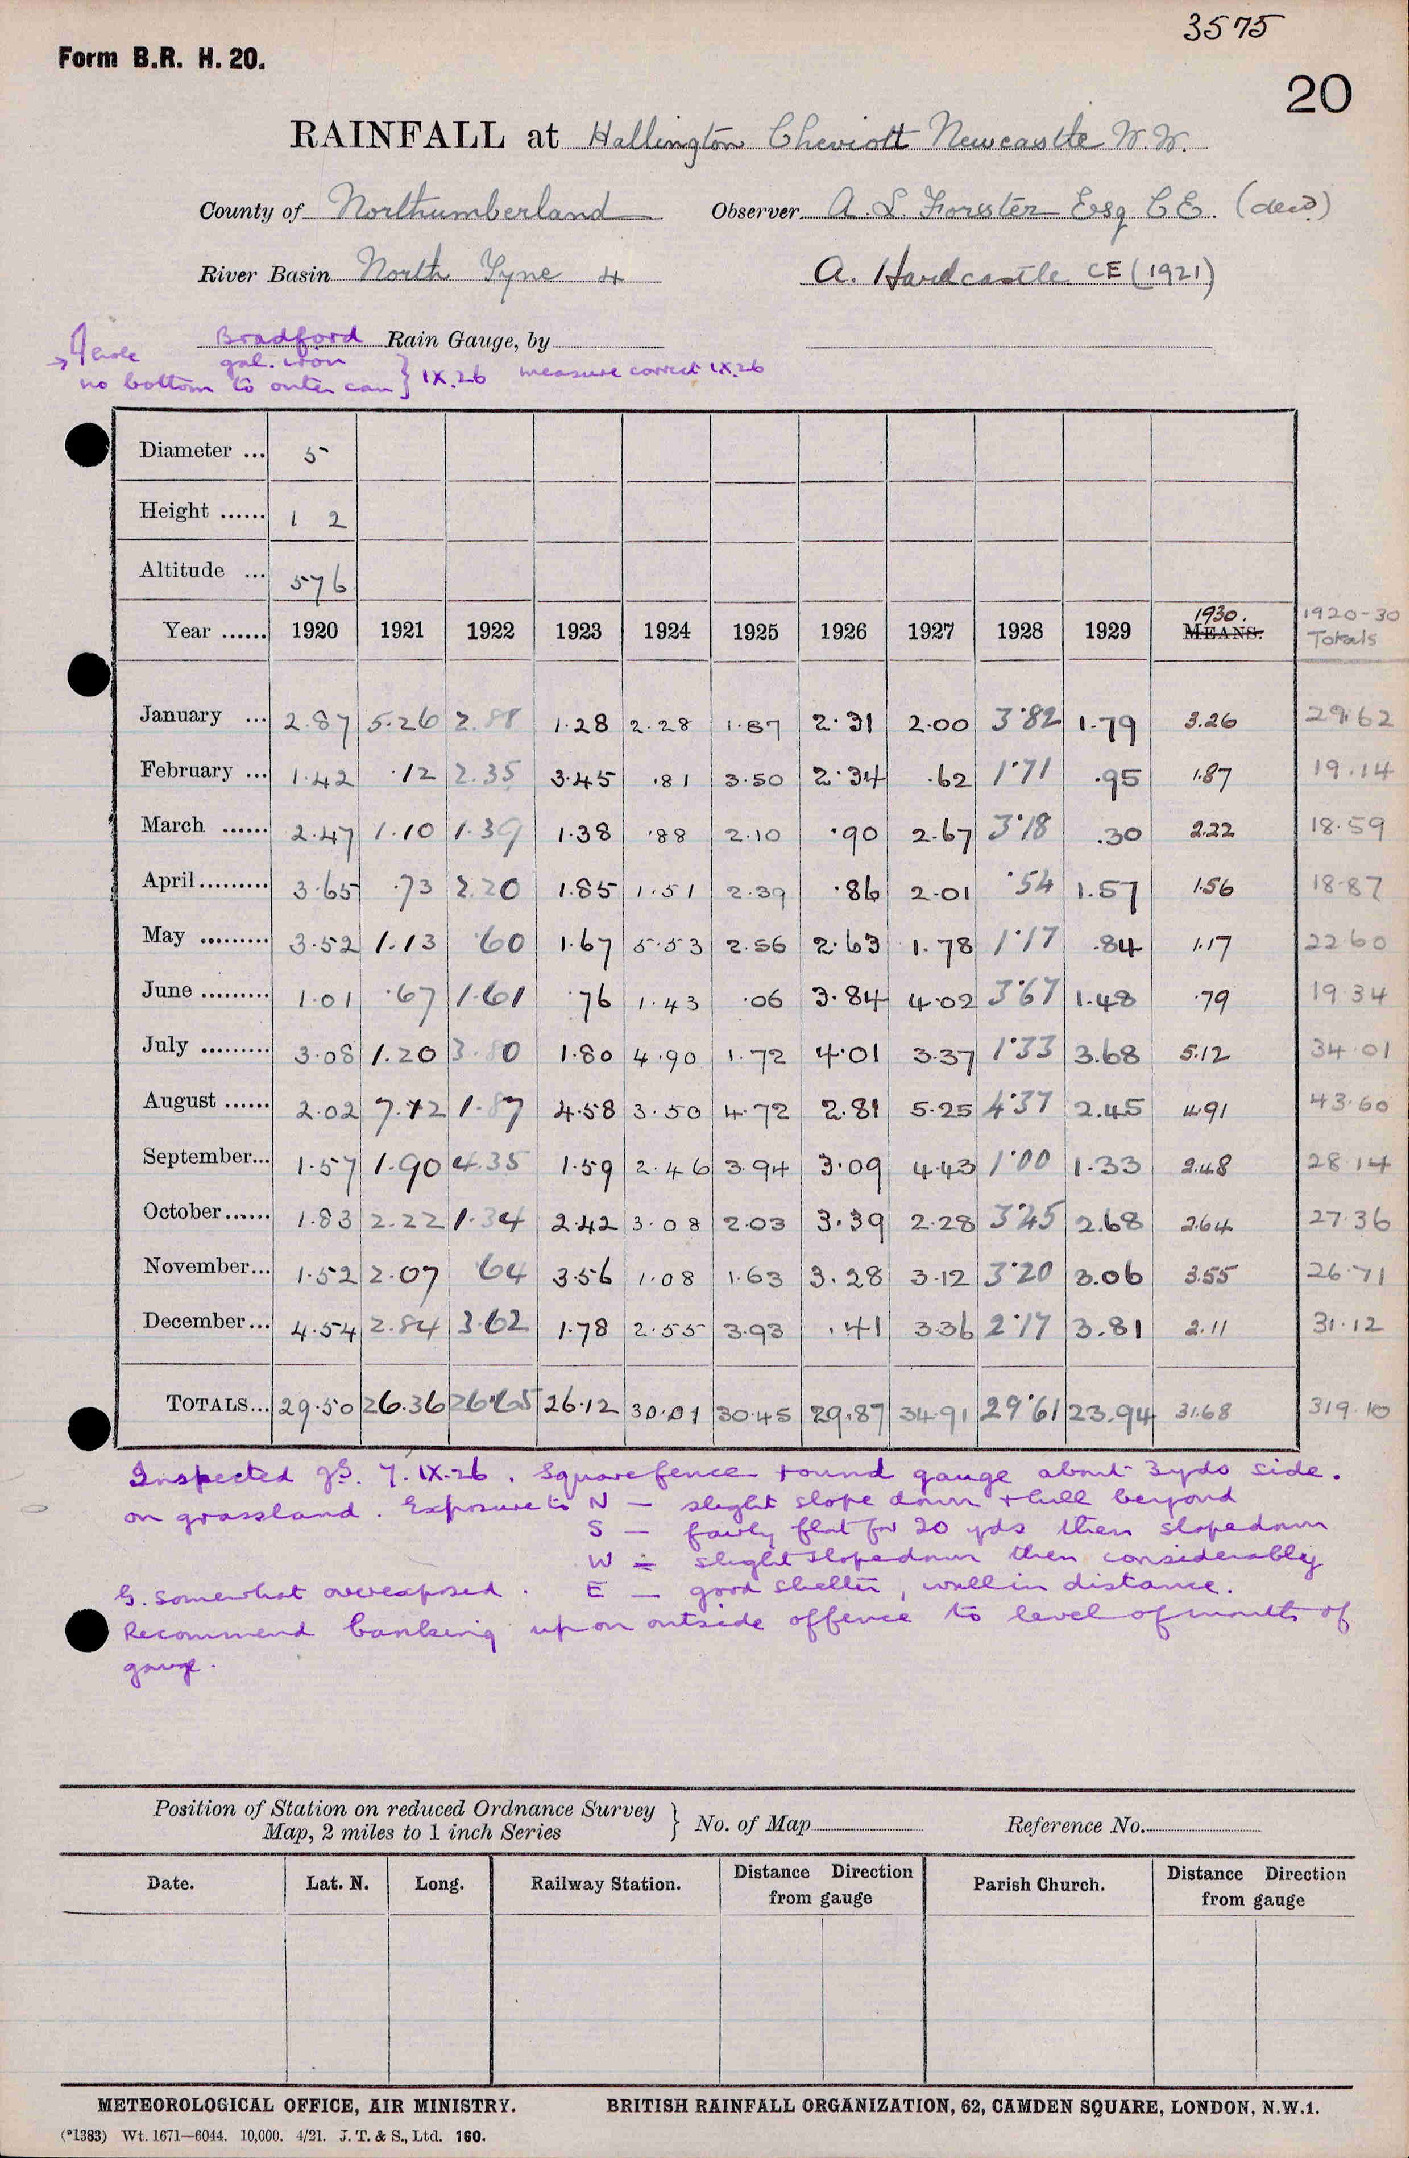 3575
Form B.R. H. 20.
20
RAINFALL at Hallington Cheviott Newcastle W.W.
County of Northumberland Observer A. L. Forster Esq C E. (decd)
River Basin North Tyne 4 A. Hardcastle CE (1921)
Bradford Rain Gauge, by
gal. iron
no bottom to outer can } IX.26 measure correct IX.26
Diameter ... 5
Height ...... 1 2
Altitude ... 576
Year ...... 1920 1921 1922 1923 1924 1925 1926 1927 1928 1929 1930. MEANS. 1920-30 Totals
January ... 2.87 5.26 2.88 1.28 2.28 1.87 2.31 2.00 3.82 1.79 3.26 29.62
February ... 1.42 .12 2.35 3.45 .81 3.50 2.34 .62 1.71 .95 1.87 19.14
March ...... 2.47 1.10 1.39 1.38 .88 2.10 .90 2.67 3.18 .30 2.22 18.59
April ......... 3.65 .73 2.20 1.85 1.51 2.39 .86 2.01 .54 1.57 1.56 18.87
May ......... 3.52 1.13 .60 1.67 5.53 2.56 2.63 1.78 1.17 .84 1.17 22.60
June ......... 1.01 .67 1.61 .76 1.43 .06 3.84 4.02 3.67 1.48 .79 19.34
July ......... 3.08 1.20 3.80 1.80 4.90 1.72 4.01 3.37 1.33 3.68 5.12 34.01
August ...... 2.02 7.12 1.87 4.58 3.50 4.72 2.81 5.25 4.37 2.45 4.91 43.60
September... 1.57 1.90 4.35 1.59 2.46 3.94 3.09 4.43 1.00 1.33 2.48 28.14
October...... 1.83 2.22 1.34 2.42 3.08 2.03 3.39 2.28 3.45 2.68 2.64 27.36
November... 1.52 2.07 .64 3.56 1.08 1.63 3.28 3.12 3.20 3.06 3.55 26.71
December... 4.54 2.84 3.62 1.78 2.55 3.93 .41 3.36 2.17 3.81 2.11 31.12
TOTALS... 29.50 26.36 26.65 26.12 30.01 30.45 29.87 34.91 29.61 23.94 31.68 319.10
Inspected 7.IX.26. Square fence round gauge about 3yds side.
on grassland. Exposure to N — slight slope down + hill beyond
S — fairly flat for 20 yds then slopedown
W — slight slopedown then considerably
G. somewhat overexposed. E — good shelter, wall in distance.
Recommend banking up on outside of fence to level of mouth of
gauge.
Position of Station on reduced Ordnance Survey
Map, 2 miles to 1 inch Series } No. of Map Reference No.
Date. Lat. N. Long. Railway Station. Distance Direction from gauge Parish Church. Distance Direction from gauge
METEOROLOGICAL OFFICE, AIR MINISTRY. BRITISH RAINFALL ORGANIZATION, 62, CAMDEN SQUARE, LONDON, N.W.1.
(*1383) Wt. 1671—6044. 10,000. 4/21. J. T. & S., Ltd. 160.